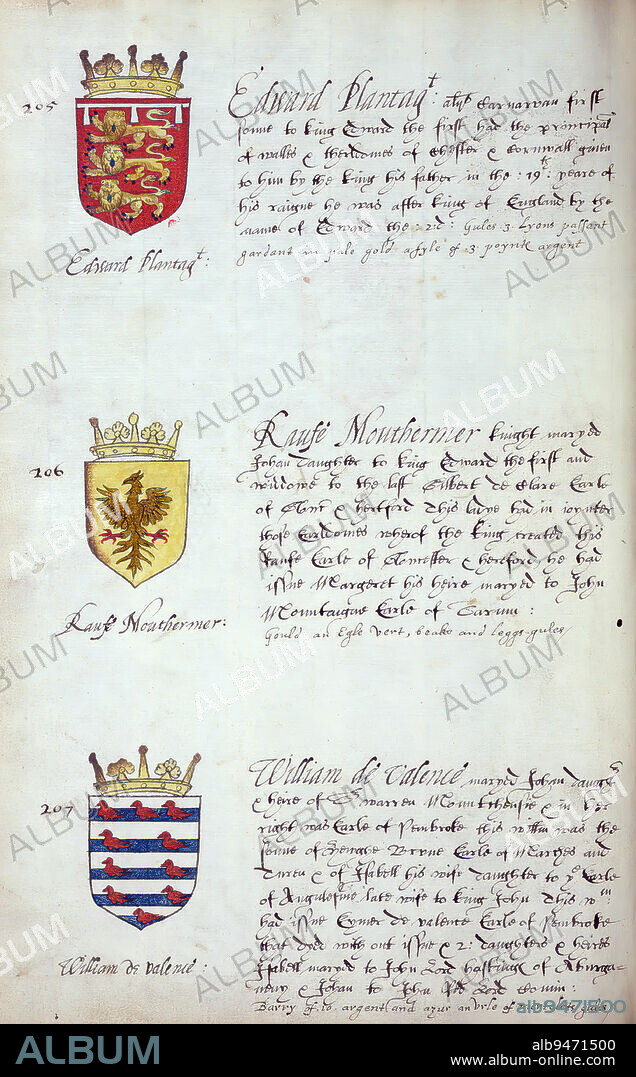 205
Edward Plantagt: als Earnarvan first
sonne to king Edward the first had the principat
of walles & therldomes of Chester & Cornwall given
to him by the king his father in the :19th: yeare of
his raigne he was after king of England by the
name of Edward the :2d: Gules 3 Lyons passant
gardant in pale gold a fyle of 3 poynte argent
Edward Plantagt:
206
Raufe Mouthermer knight maryed
Johan daughter to king Edward the first and
widdowe to the last Gilbert de Clare Earle
of Glour & hertford this ladye had in joynter
those Earldomes wherof the king created this
Raufe Earle of Glocester & hereford, he had
issue Margeret his heire maryed to John
Mountaigue Earle of Sarum:
Gould an Egle vert, beake and leggs gules
Raufe Mouthermer:
207
William de Valence maryed Johan daughtr
& heire of Sr warren Mountchensie & in her
right was Earle of Pembroke this willm was the
sonne of Hughe Brune Earle of Marches and
of Isabell his wife daughter to ye Earle
of Angulesme, late wife to king John this wm
had issue Eymer de valence Earle of Pembroke
that dyed with out issue & 2: daughters & heires
Isabell maryed to John Lord hastings of Aburga-
veny & Johan to John Lord Comin:
Barry of 10 argent and azur an urle of
William de Valence:
ALBUM
alb9471500
ALBUM
alb9471500
www.album-online.com